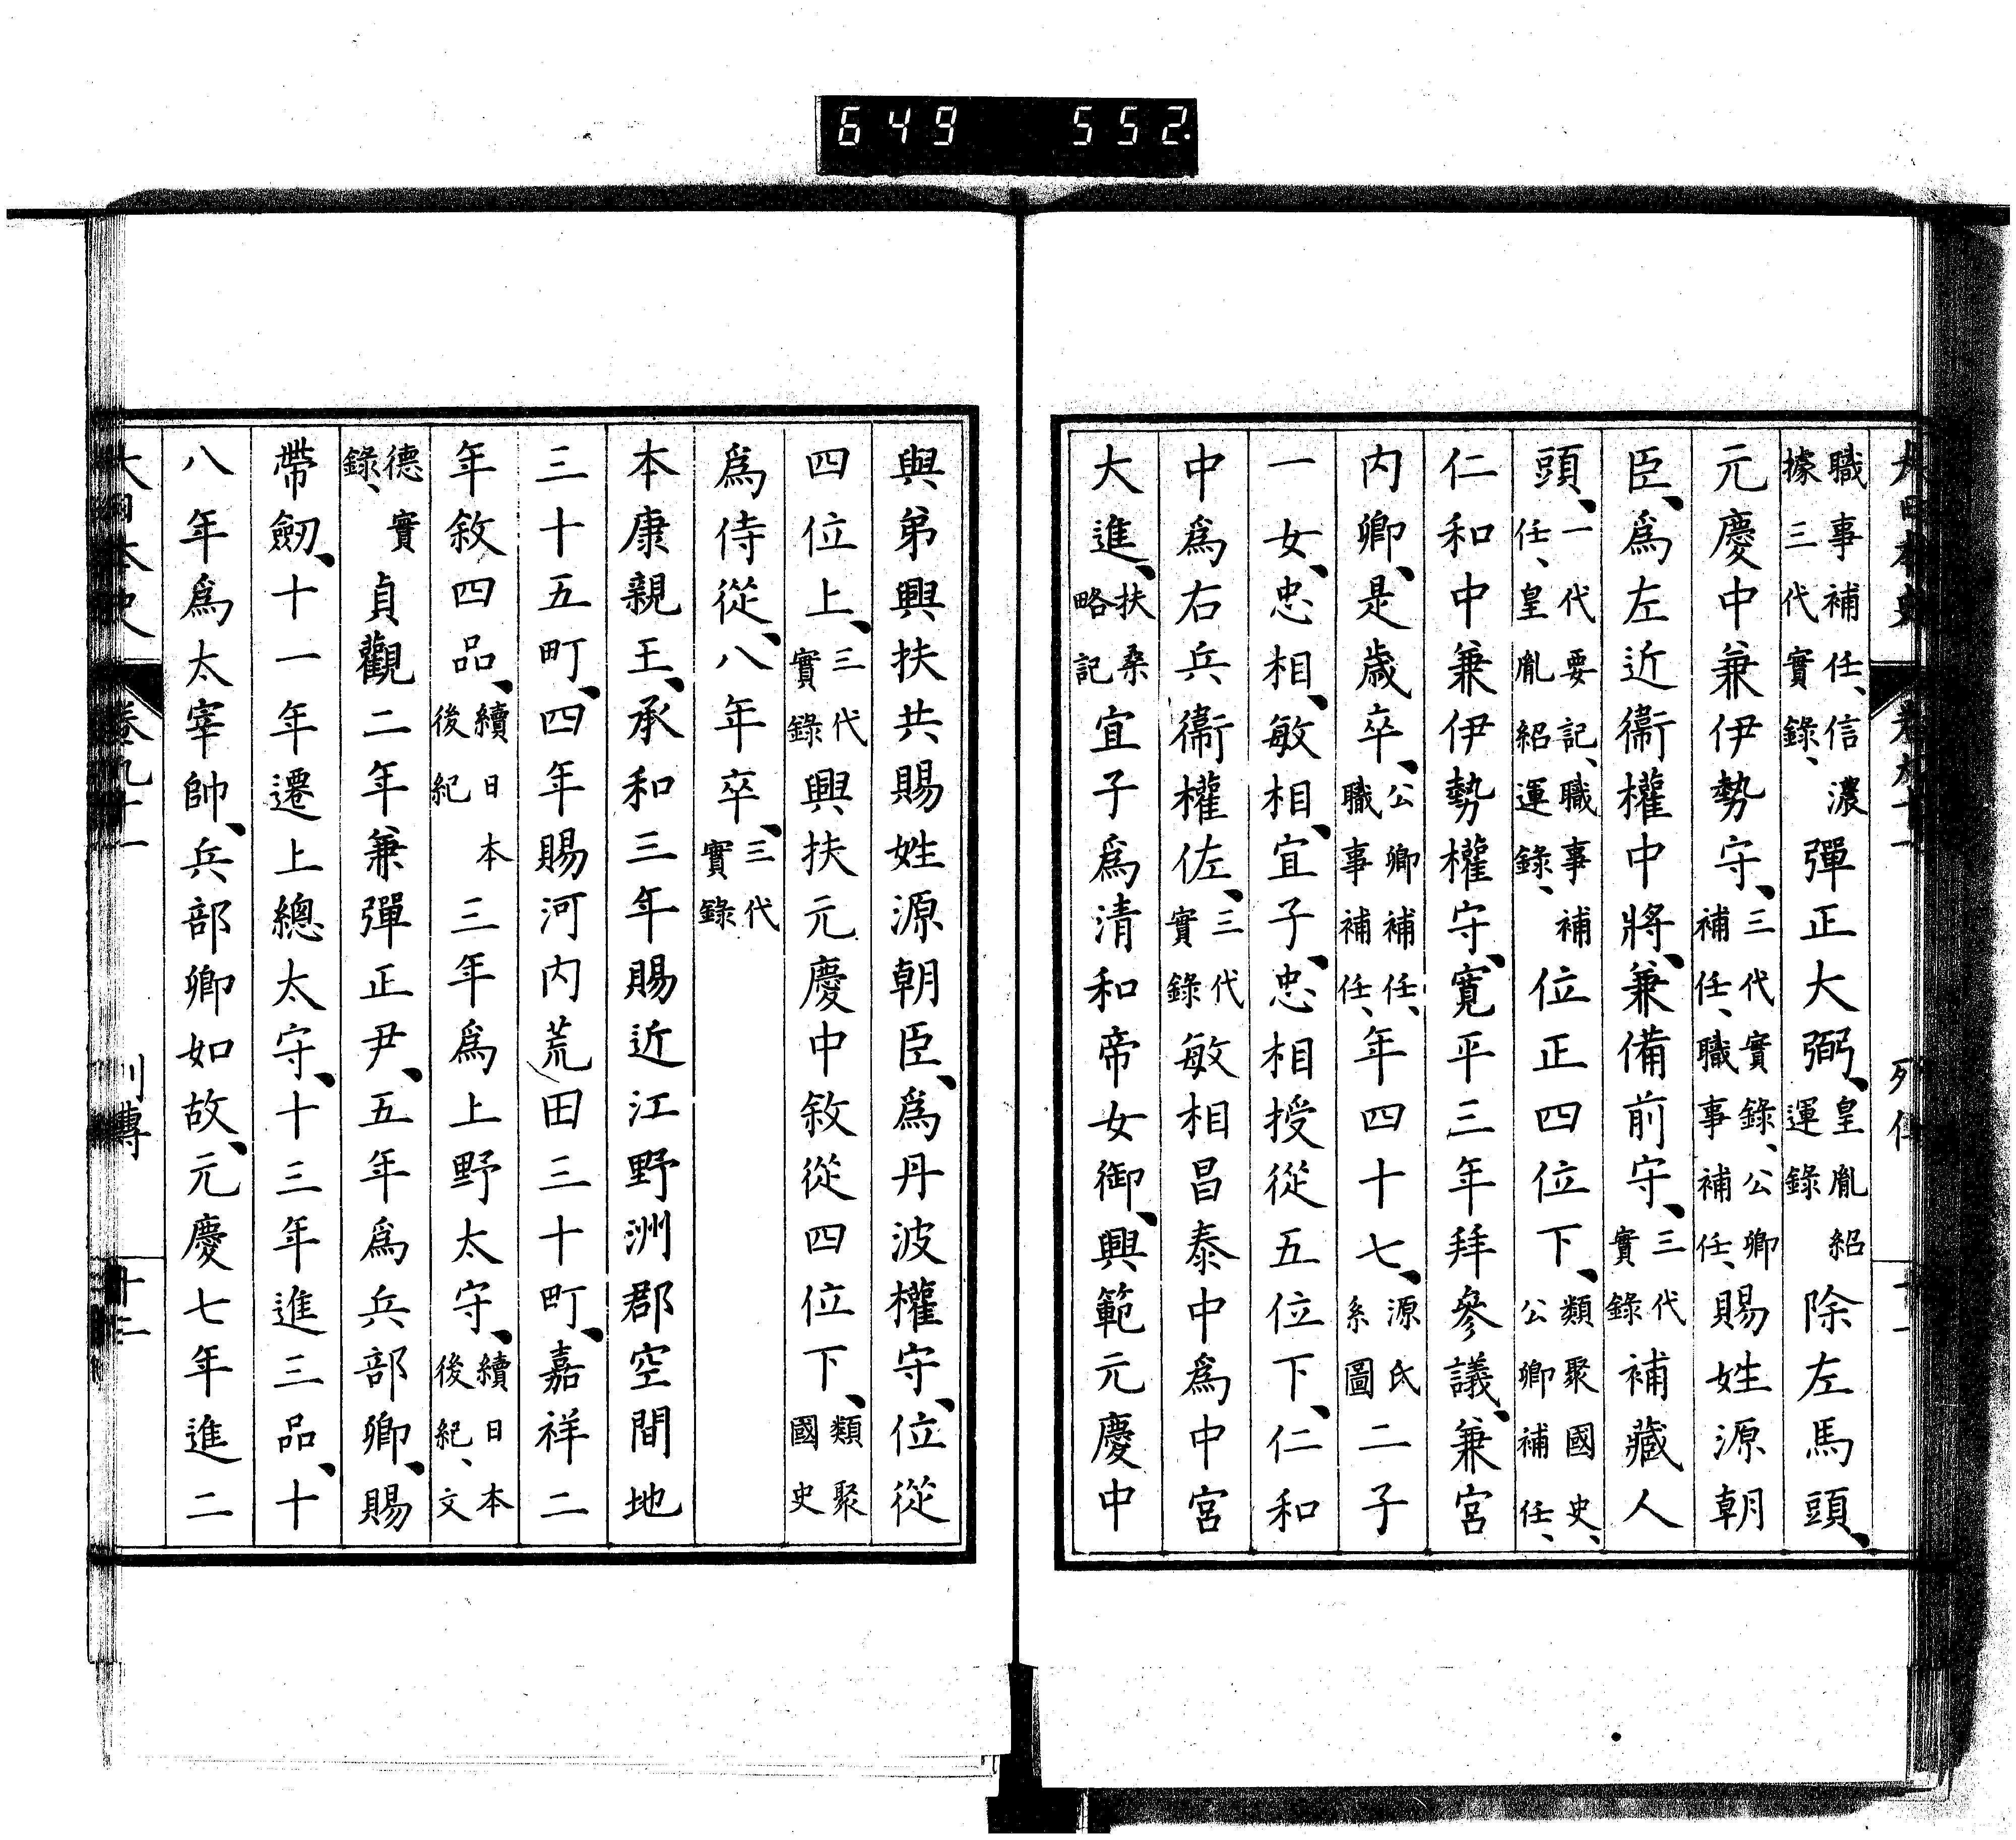 649 552.
大日本史 卷九十一 列傳 十一
職事補任、信濃據三代實錄、彈正大弼、皇胤紹運錄除左馬頭、
元慶中兼伊勢守、三代實錄、公卿補任、職事補任、賜姓源朝
臣、爲左近衞權中將、兼備前守、三代實錄補藏人
頭、一代要記、職事補任、皇胤紹運錄、位正四位下、類聚國史、公卿補任、
仁和中兼伊勢權守、寬平三年拜參議、兼宮
内卿、是歲卒、公卿補任、職事補任、年四十七、源氏系圖二子
一女、忠相、敏相、宜子、忠相授從五位下、仁和
中爲右兵衞權佐、三代實錄敏相昌泰中爲中宮
大進、扶桑略記宜子爲清和帝女御、興範元慶中
與弟興扶共賜姓源朝臣、爲丹波權守、位從
四位上、三代實錄興扶元慶中敘從四位下、類聚國史
爲侍從、八年卒、三代實錄
本康親王、承和三年賜近江野洲郡空閒地
三十五町、四年賜河内荒田三十町、嘉祥二
年敘四品、續日本後紀三年爲上野太守、續日本後紀、文
德實錄、貞觀二年兼彈正尹、五年爲兵部卿、賜
帶劒、十一年遷上總太守、十三年進三品、十
八年爲太宰帥、兵部卿如故、元慶七年進二
大日本史 卷九十一 列傳 十二